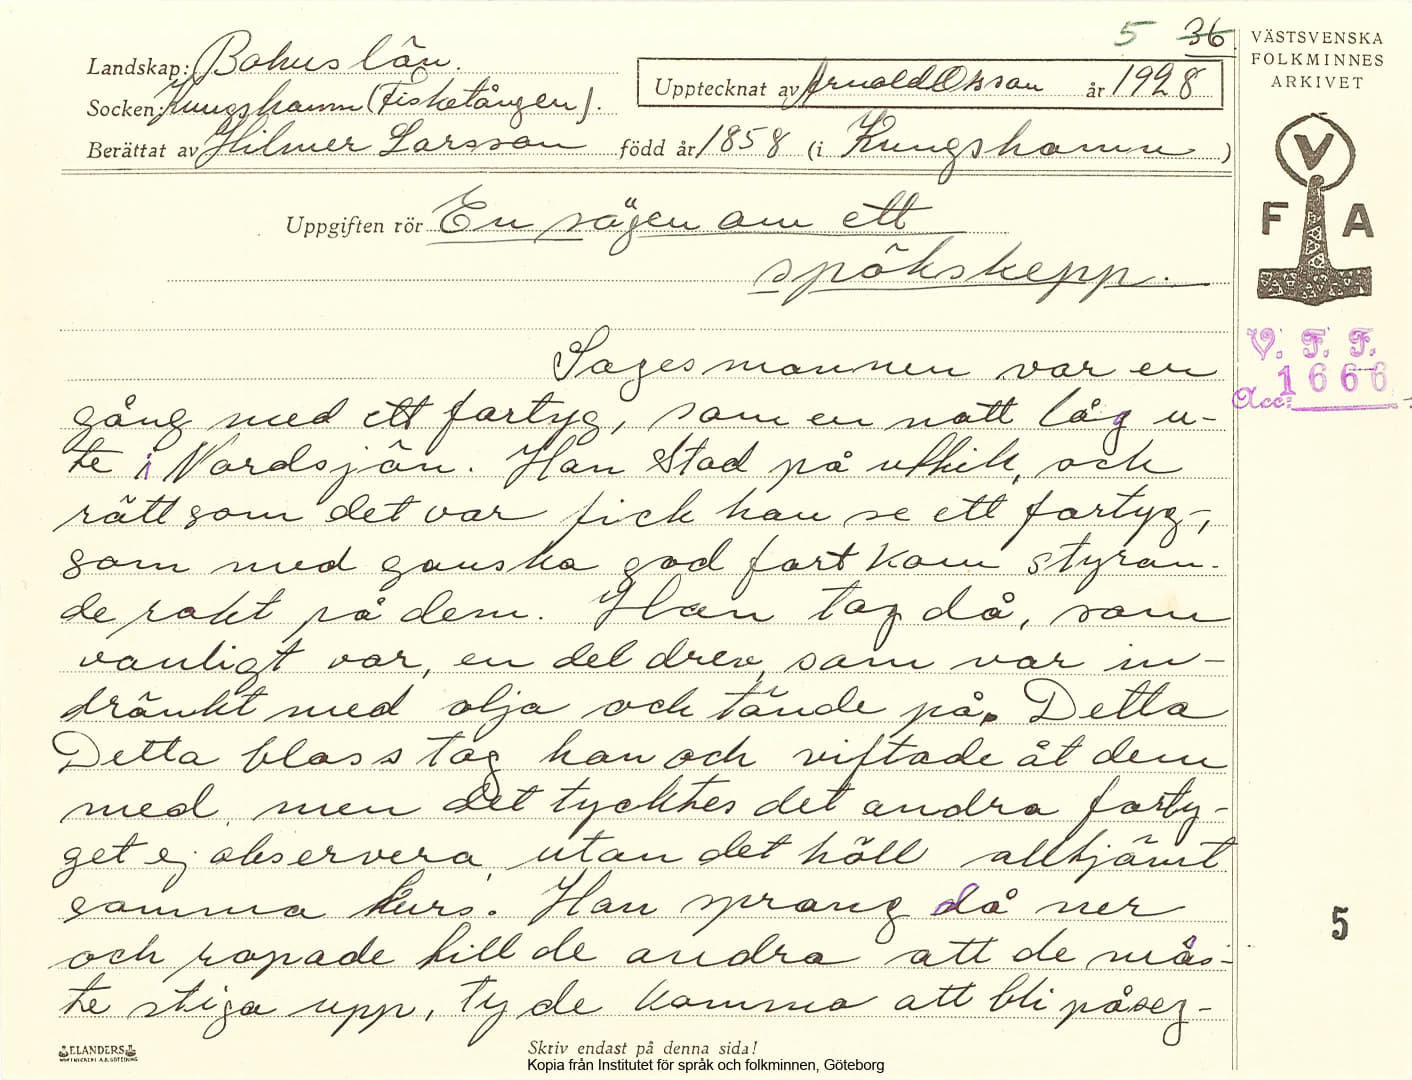 5 36
VÄSTSVENSKA
FOLKMINNES
ARKIVET
Landskap: Bohus län.
Upptecknat av Arnold Olsson år 1928
Socken: Kungshamn (Fisketången).
Berättat av Hilmer Larsson född år 1858 (i Kungshamn)
V
F A
Uppgiften rör En sägen om ett
spökskepp.
V. F. F.
Acc: 1666
Sagesmannen var en
gång med ett fartyg, som en natt låg u-
te i Nordsjön. Han Stod på utkik, och
rätt som det var fick han se ett fartyg,
som med ganska god fart kom styran-
de rakt på dem. Han tog då, som
vanligt var, en del drev, som var in-
dränkt med olja och tände på. Detta
Detta bloss tog han och viftade åt dem
med, men det tycktes det andra farty-
get ej observera, utan det höll alltjämt
samma kurs. Han sprang då ner
och ropade till de andra att de mås-
te stiga upp, ty de komma att bli påseg-
5
ELANDERS
BOKTRYCKERI A.B. GÖTEBORG
Skriv endast på denna sida!
Kopia från Institutet för språk och folkminnen, Göteborg